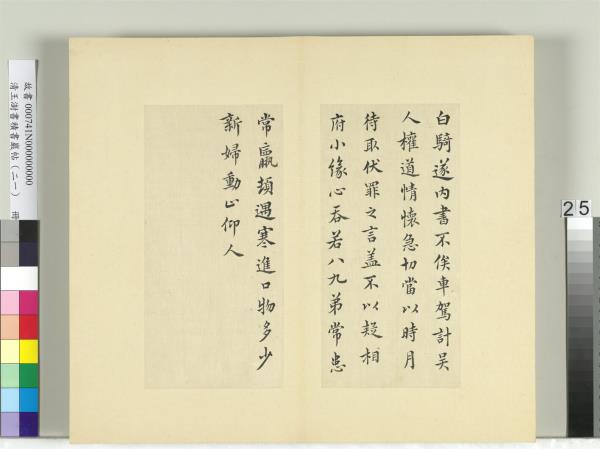 白騎遂內書不俟車駕計吴
人權道情懷急切當以時月
待取伏罪之言蓋不以疑相
府小緣心吞若八九弟常患
常羸頓遇寒進口物多少
新婦動止仰人
故書 000741N000000000
清王澍書積書巖帖(二一) 冊
25